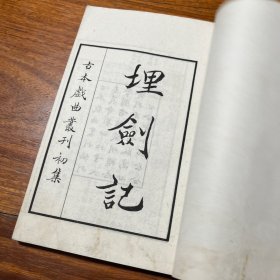 埋劍記
古本戲曲叢刊初集